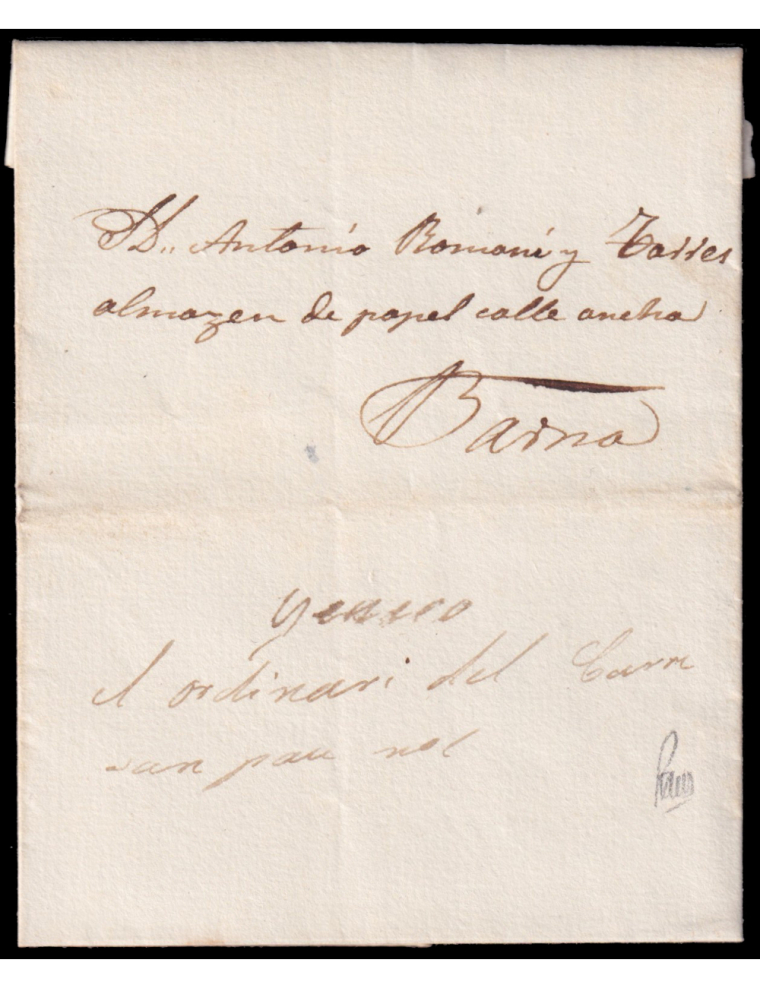 S. D.n Antonio Romani y Torres
almazen de papel calle ancha
Barna
ynero
el ordinari del Carre
san pau no